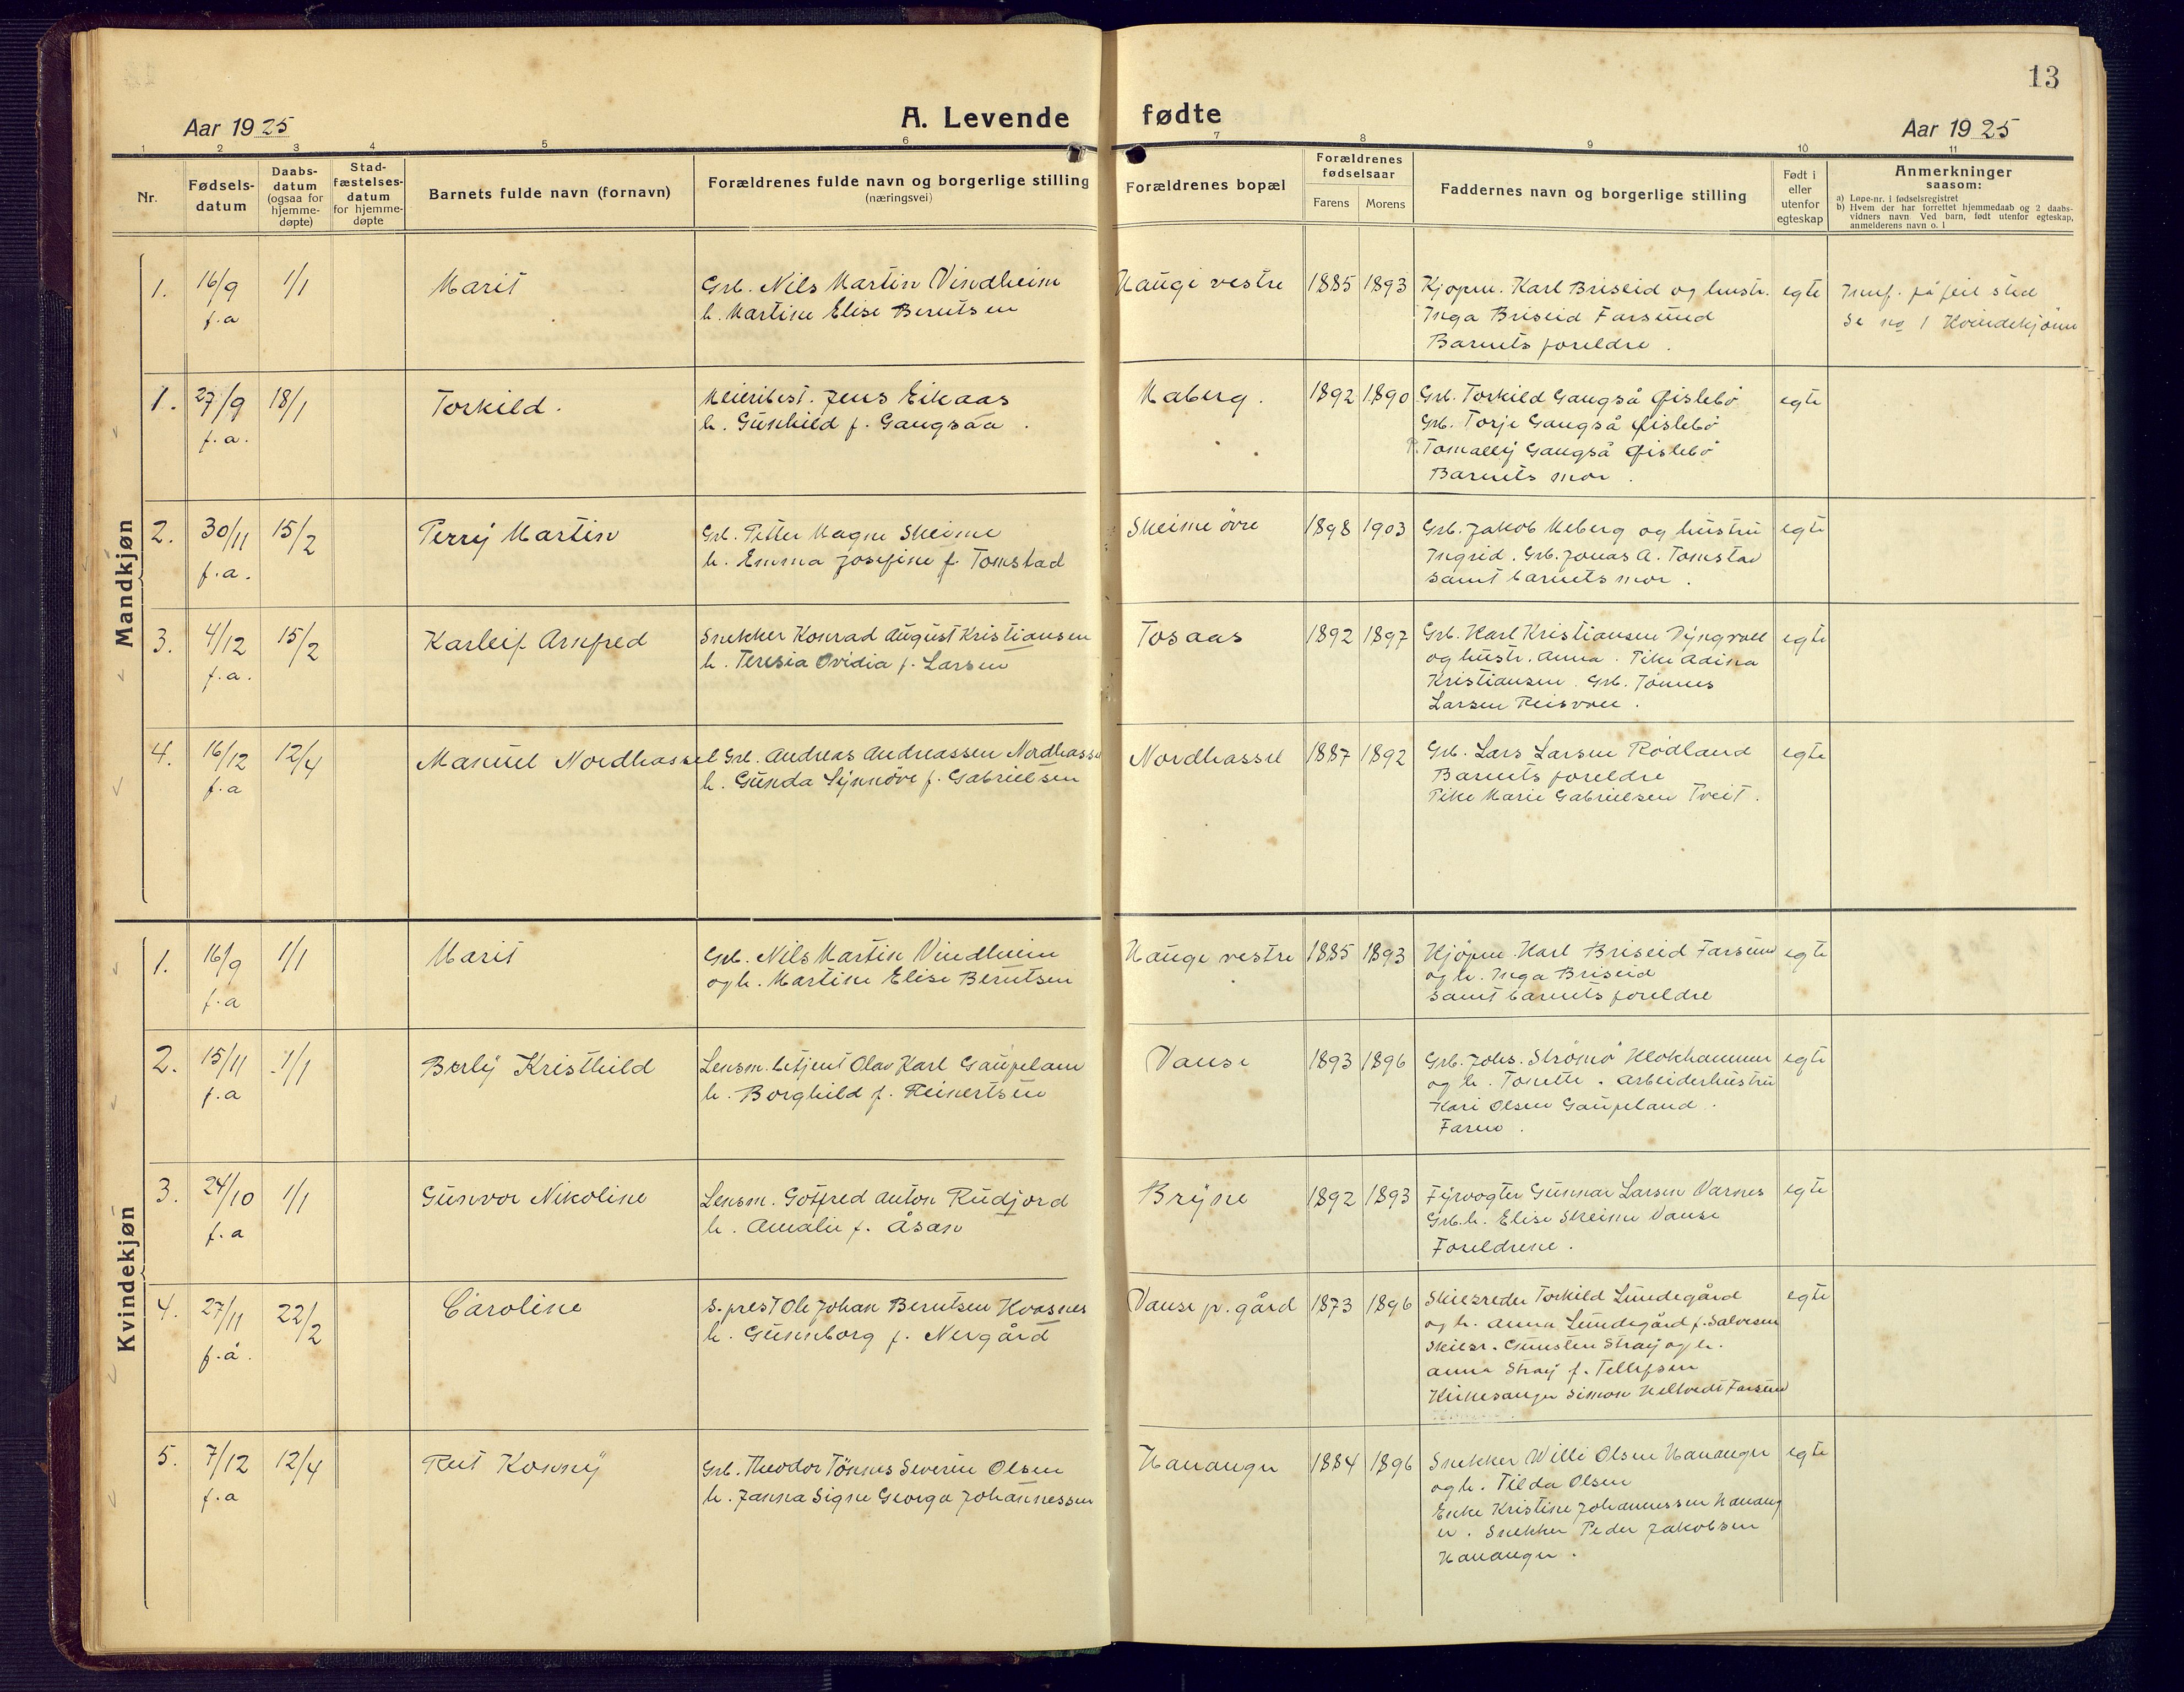 13
A. Levende fødte
Aar 1925
Aar 1925
1 2 3 4 5 6 7 8 9 10 11
Nr.
Fødsels-
datum
Daabs-
datum
(ogsaa for
hjemme-
døpte)
Stad-
fæstelses-
datum
for hjemme-
døpte
Barnets fulde navn (fornavn)
Forældrenes fulde navn og borgerlige stilling
(næringsvei)
Forældrenes bopæl
Forældrenes
fødselsaar
Farens Morens
Faddernes navn og borgerlige stilling
Født i
eller
utenfor
egteskap
Anmerkninger
saasom:
a) Løpe-nr. i fødselsregistret
b) Hvem der har forrettet hjemmedaab og 2 daabs-
vidners navn Ved barn, født utenfor egteskap,
anmelderens navn o. l
Mandkjøn
1. 16/9 f.a 1/1 Marit
Grb. Nils Martin Vindheim
h. Martine Elise Berntsen
Hauge vestre 1885 1893
Kjøpm. Karl Briseid og hustr.
Inga Briseid Farsund
Barnets foreldre.
egte
Innf. på feil sted
Se no 1 Kvindekjønn
1. 27/9 f.a. 18/1 Torkild.
Meieribest. Jens Eikaas
h. Gunhild f. Gangsaa.
Maberg. 1892 1890
Grb. Torkild Gangså Øislebø
Grb. Torje Gangså Øislebø
P. Tomally Gangså Øislebø
Barnets mor.
egte
2. 30/11 f.a. 15/2 Perry Martin
Grb. Petter Magne Skeime
h. Emma Josefine f. Tomstad
Skeime øvre 1898 1903
Grb. Jakob Meberg og hustru
Ingrid. Grb. Jonas A. Tomstad
samt barnets mor.
egte
3. 4/12 f.a. 15/2 Karleif Arnfred
Snekker Konrad August Kristiansen
h. Teresia Ovidia f. Larsen
Tosaas 1892 1897
Grb. Karl Kristiansen Dyngvoll
og hustr. Anna. Pike Adina
Kristiansen. Grb. Tønnes
Larsen Reisvoll.
egte
4. 16/12 f.a 12/4 Manuel Nordhassel
Grb. Andreas Andreassen Nordhassel
h. Gunda Synnøve f. Gabrielsen
Nordhassel 1887 1892
Grb. Lars Larsen Rødland
Barnets foreldre
Pike Marie Gabrielsen Tveit.
egte
Kvindekjøn
1. 16/9 f.a 1/1 Marit
Grb. Nils Martin Vindheim
og h. Martine Elise Berntsen
Hauge vestre 1885 1893
Kjøpm. Karl Briseid Farsund
og h. Inga Briseid
samt barnets foreldre
egte
2. 15/11 f.a 1/1 Berly Kristhild
Lensm. betjent Olav Karl Gaupeland
h. Borghild f. Reinertsen
Vanse 1893 1896
Grb. Johs. Strømø Klokhammer
og h. Tonette. Arbeiderhustru
Kari Olsen Gaupeland.
Faren.
egte
3. 24/10 f.a 1/1 Gunvor Nikoline
Lensm. Gotfred Anton Rudjord
h. Amalie f. Åsan
Bryne 1892 1893
Fyrvogter Gunnar Larsen Varnes
Grb.h. Elise Skeime Vanse
Foreldrene.
egte
4. 27/11 f.å. 22/2 Caroline
S.prest Ole Johan Berntsen Kvasnes
h. Gunnborg f. Nergård
Vanse p. gård 1873 1896
Skibsreder Torkild Lundegård
og h. Anna Lundegård f. Salvesen
Skibsr. Gunsten Stray og h.
Anna Stray f. Tellefsen
Kirkesanger Simon Heltvedt Farsund
egte
5. 7/12 f.a 12/4 Rut Konny
Grb. Theodor Tønnes Severin Olsen
h. Janna Signe Georga Johannessen
Hananger 1884 1896
Snekker Willi Olsen Hananger
og h. Tilda Olsen
Enke Kristine Johannessen Hanang
er. Snekker Peder Jakobsen
Hananger.
egte